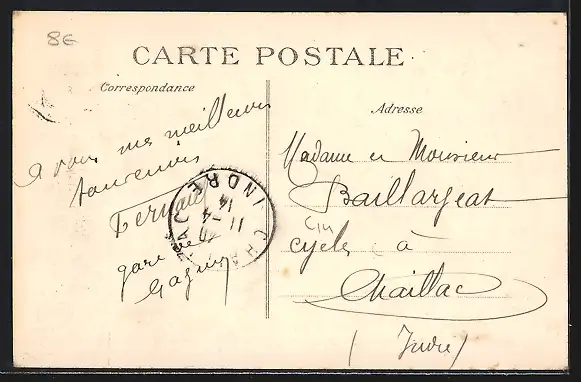 8E
CARTE POSTALE
Correspondance
A vous mes meilleurs
souvenirs
Fernand
gare de
Adresse
Madame et Monsieur
Baillargeat
cycles à
Chaillac
(Indre)
CHA INDRE
11-4
14